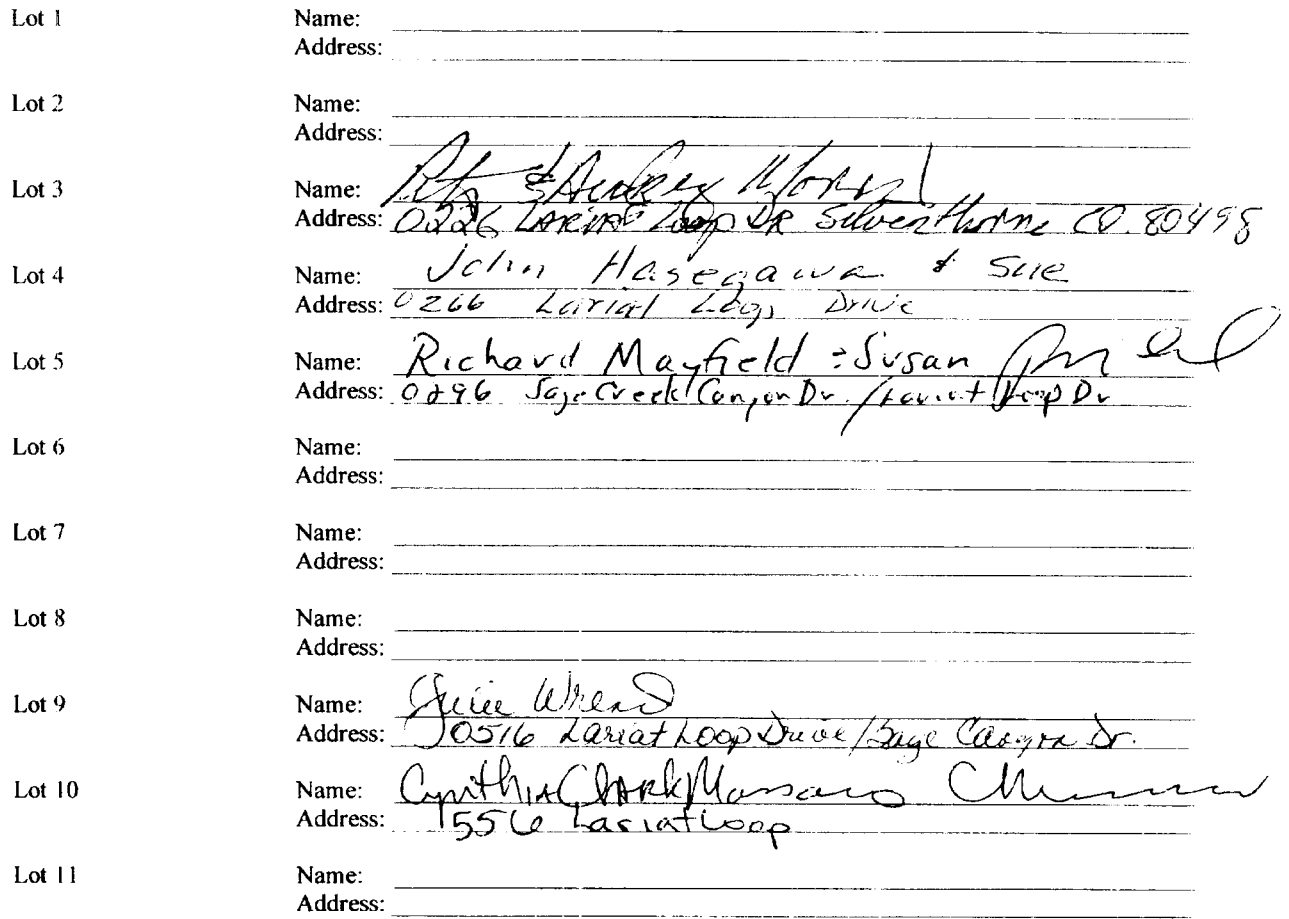 Lot 1 Name:
Address:
Lot 2 Name:
Address:
Lot 3 Name: & Audrey
Address: 0226 LARIAT Loop DR Silverthorne CO. 80498
Lot 4 Name: John Hasegawa & Sue
Address: 0266 Lariat Loop Drive
Lot 5 Name: Richard Mayfield & Susan
Address: 0296 Sage Creek Canyon Dr. / Lariat Loop Dr
Lot 6 Name:
Address:
Lot 7 Name:
Address:
Lot 8 Name:
Address:
Lot 9 Name: Julie
Address: 0516 Lariat Loop Drive / Sage Canyon Dr.
Lot 10 Name: Cynthia Clark Massaro
Address: 556 Lariat Loop
Lot 11 Name:
Address: